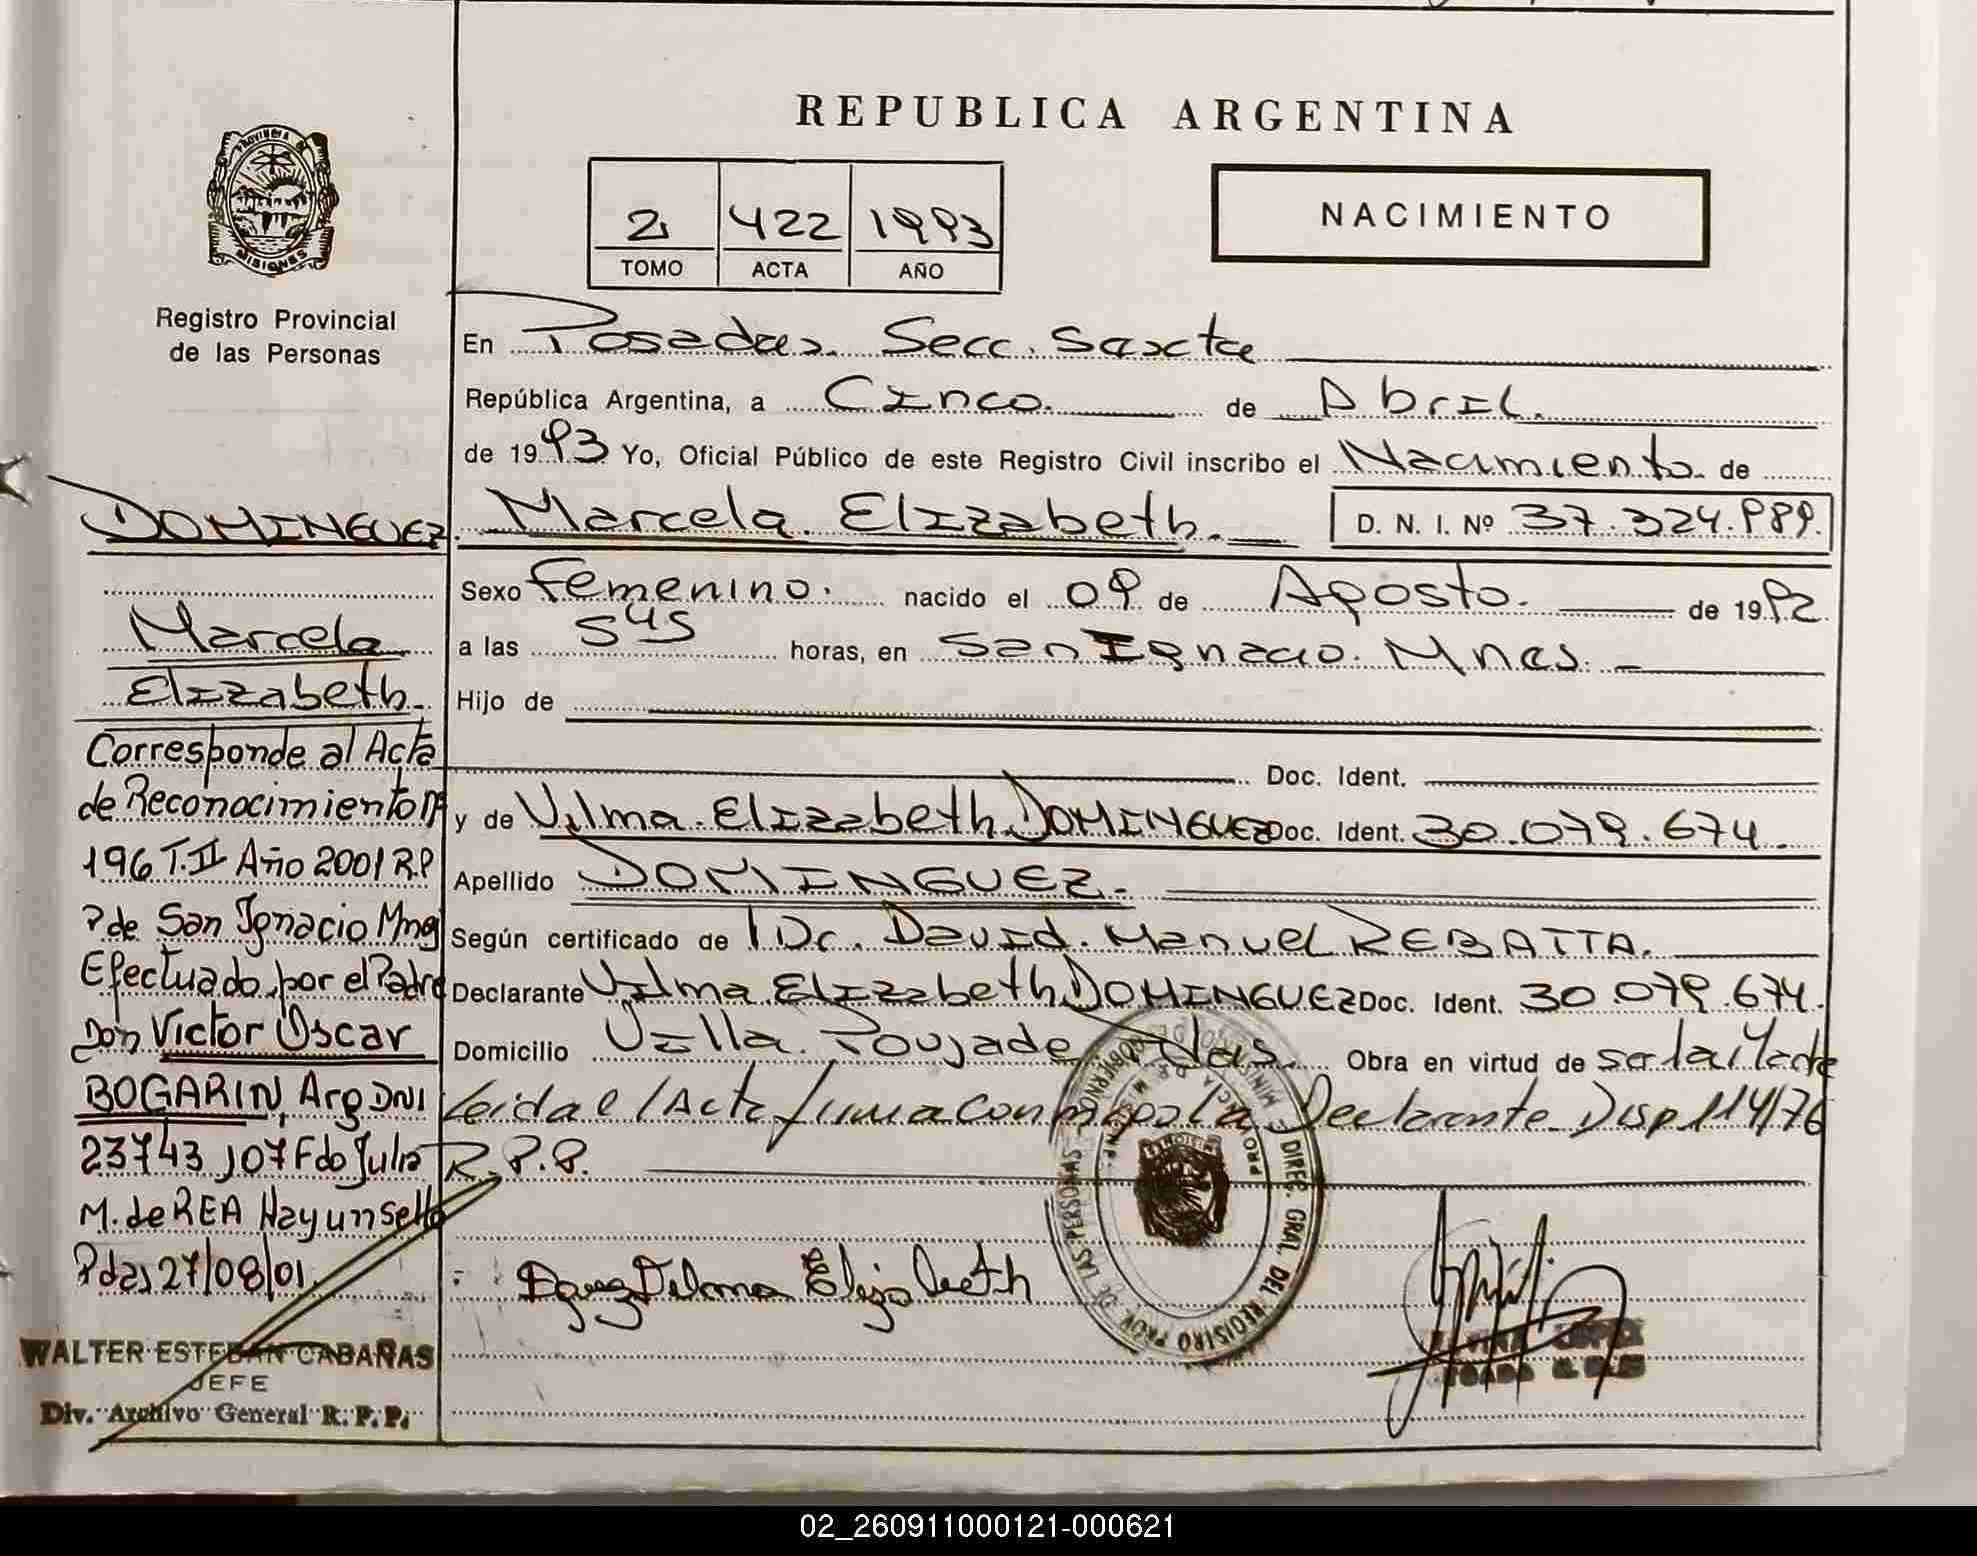 REPUBLICA ARGENTINA
PROVINCIA DE
MISIONES
Registro Provincial
de las Personas
2 422 1993
TOMO ACTA AÑO
NACIMIENTO
En Posadas. Secc. Sexta
República Argentina, a Cinco. de Abril.
de 1993 Yo, Oficial Público de este Registro Civil inscribo el Nacimiento de
Marcela Elizabeth. D. N. I. Nº 37.324.989.
Sexo Femenino. nacido el 09 de Agosto. de 1992
a las 5 45 horas, en San Ignacio. Mnes.
Hijo de
Doc. Ident.
y de Vilma Elizabeth DOMINGUEZ Doc. Ident. 30.079.674.
Apellido DOMINGUEZ.
Según certificado de Dr. David. Manuel REBATTA.
Declarante Vilma Elizabeth DOMINGUEZ Doc. Ident. 30.079.674.
Domicilio Villa Poujade Pdas. Obra en virtud de ser la Madre
Leida el Acta firma con migo la Declarante Disp 114/76
R.P.P.
DOMINGUEZ
Marcela
Elizabeth
Corresponde al Acta
de Reconocimiento Nº
196 T.II Año 2001 R.P
P de San Ignacio Mnes
Efectuado por el Padre
Don Victor Oscar
BOGARIN, Arg DNI
23743107 Fdo Julia
M. de REA Hay un sello
Pdas 27/08/01.
WALTER ESTEBAN CABAÑAS
JEFE
Div. Archivo General R. P. P.
Vilma Elizabeth
DIREC. GRAL. DEL REGISTRO PROV. DE LAS PERSONAS
MINISTERIO DE GOBIERNO
02_260911000121-000621